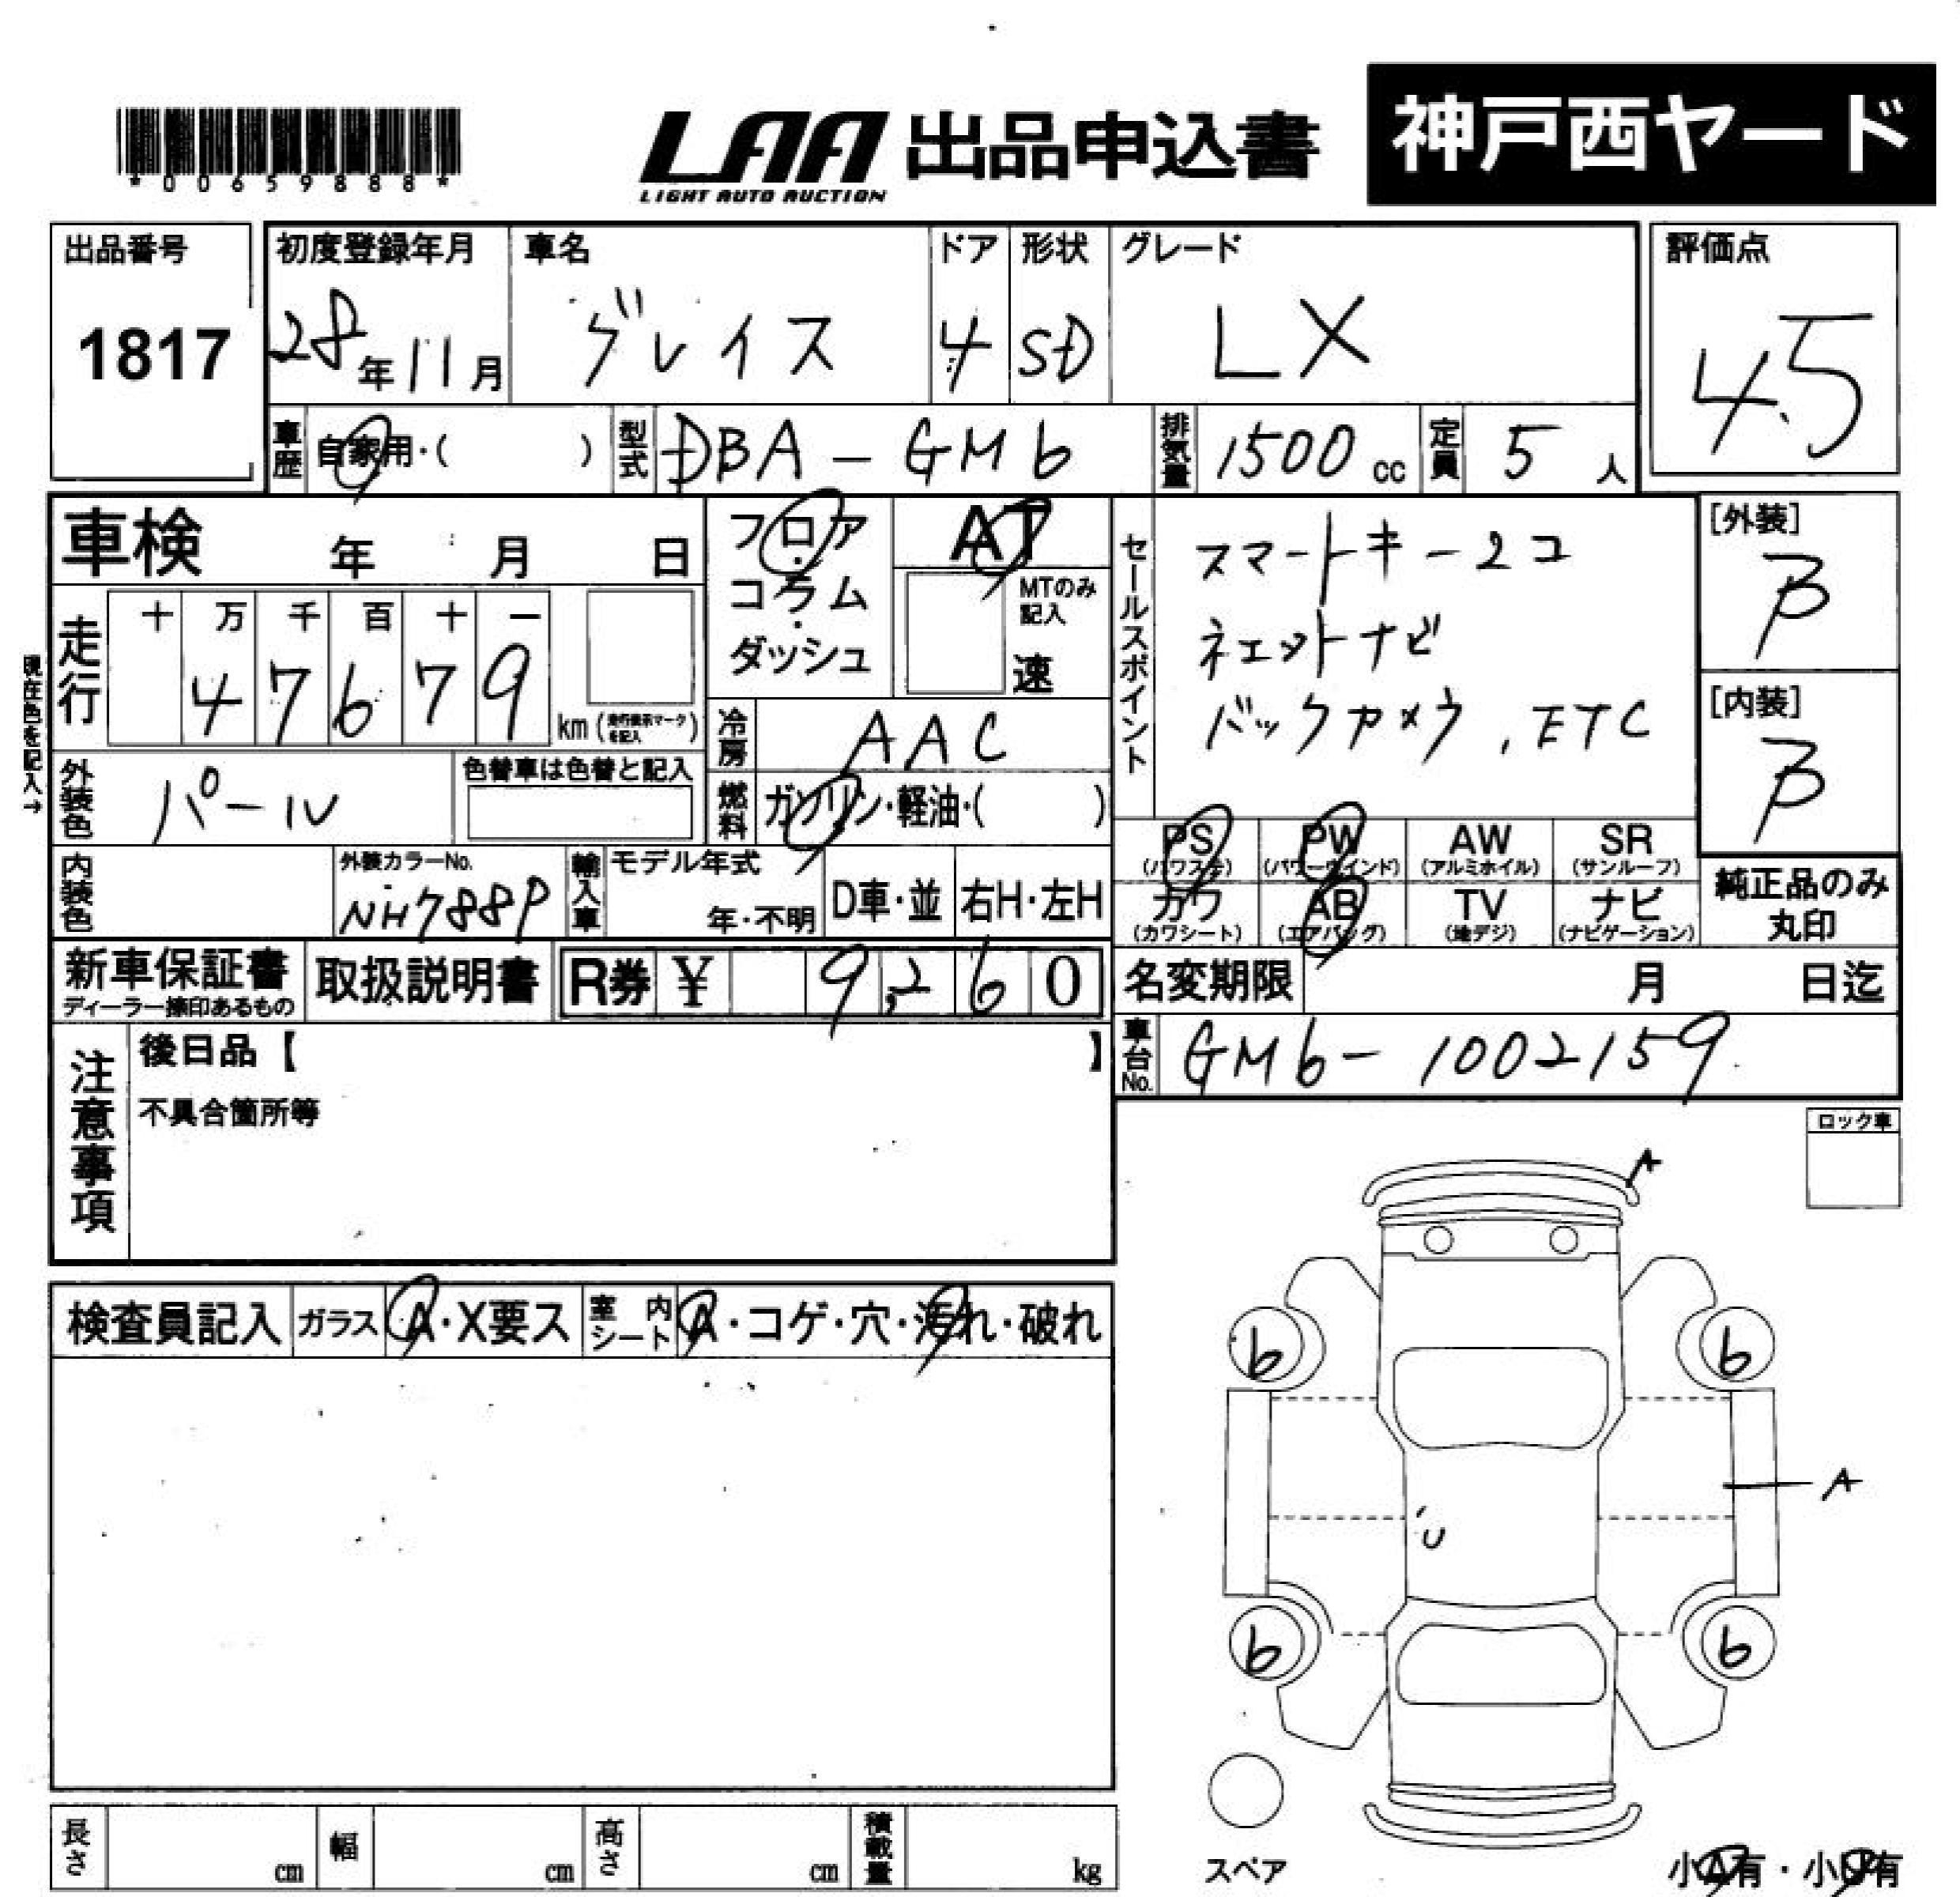 *00659888*
LAA 出品申込書 神戸西ヤード
LIGHT AUTO AUCTION
出品番号 初度登録年月 車名 ドア 形状 グレード 評価点
1817 28年11月 グレイス 4 SD LX 4.5
車歴 自家用・( ) 型式 DBA-GM6 排気量 1500cc 定員 5人
車検 年 月 日
フロア・コラム・ダッシュ
AT
MTのみ記入
速
セールスポイント
スマートキー2コ
ネェットナビ
バックカメラ, ETC
[外装]
B
[内装]
B
現在色を記入→
走行 十 万 千 百 十 一
47679
km(走行表示マークを記入)
冷房 AAC
外装色 パール 色替車は色替と記入
燃料 ガソリン・軽油・( )
内装色 外装カラーNo. NH788P
輸入車 モデル年式 年・不明 D車・並 右H・左H
PS PW AW SR
(パワステ) (パワーウインド) (アルミホイル) (サンルーフ)
カワ AB TV ナビ
(カワシート) (エアバッグ) (地デジ) (ナビゲーション)
純正品のみ
丸印
新車保証書 取扱説明書 R券 ¥ 9,260
ディーラー捺印あるもの
名変期限 月 日迄
車台No. GM6-1002159
注意事項
後日品【 】
不具合箇所等
ロック車
A
検査員記入 ガラス A・X要ス 室内シート A・コゲ・穴・汚れ・破れ
b b
A
U
b b
長さ cm 幅 cm 高さ cm 積載量 kg
スペア
小A有・小U有